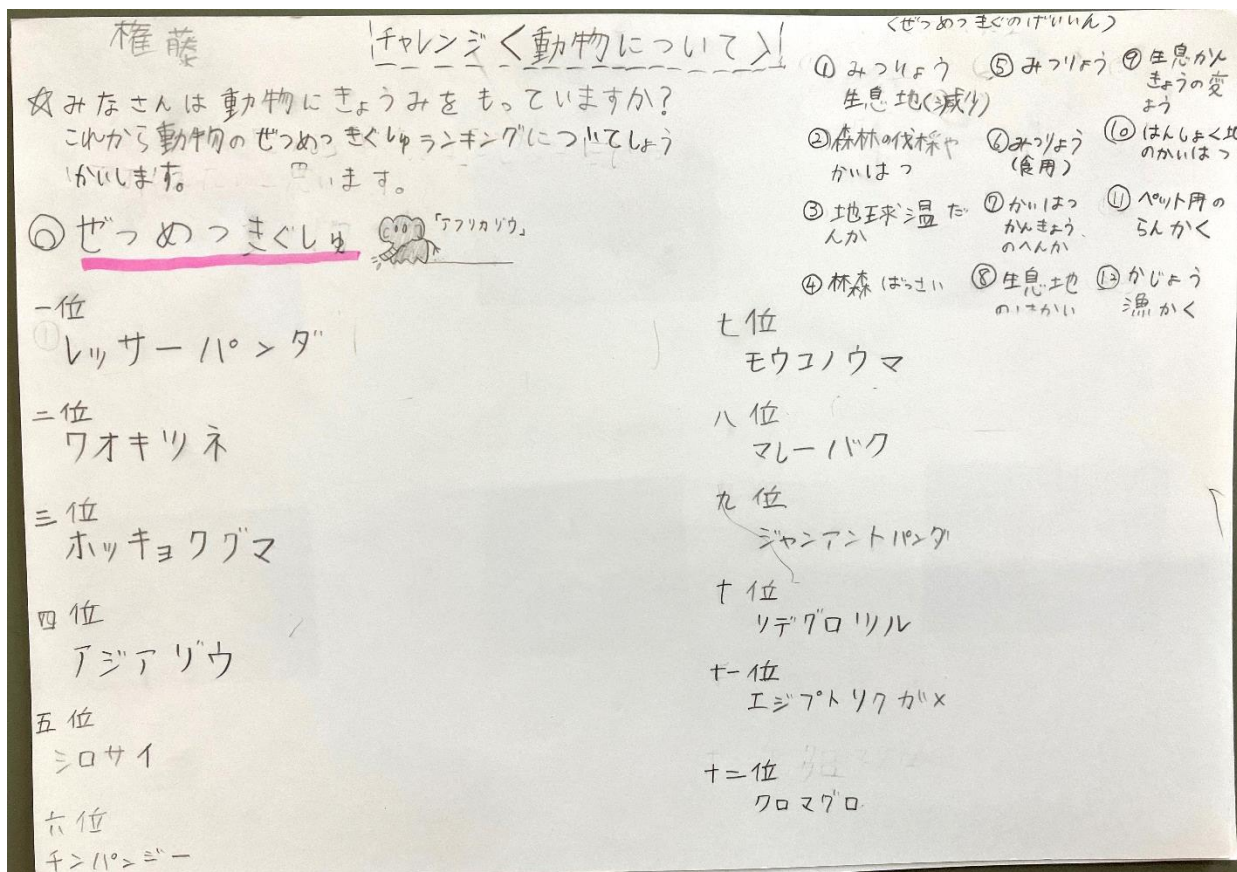 権藤
チャレンジ〈動物について〉
☆みなさんは動物にきょうみをもっていますか?
これから動物のぜつめつきぐしゅランキングについてしょう
かいします。
います。
◎ぜつめつきぐしゅ
「アフリカゾウ」
一位
レッサーパンダ
二位
ワオキツネ
三位
ホッキョクグマ
四位
アジアゾウ
五位
シロサイ
六位
チンパンジー
七位
モウコノウマ
八位
マレーバク
九位
ジャンアントパンダ
十位
ソデグロヅル
十一位
エジプトリクガメ
十二位
クロマグロ
〈ぜつめつきぐのげいいん〉
①みつりょう
生息地(減少)
②森林の伐採や
かいはつ
③地球温だ
んか
④林森ばっさい
⑤みつりょう
⑥みつりょう
(食用)
⑦かいはつ
かんきょう
のへんか
⑧生息土地
のはかい
⑨生息かん
きょうの変
よう
⑩はんしょく地
のかいはつ
⑪ペット用の
らんかく
⑫かじょう
漁かく